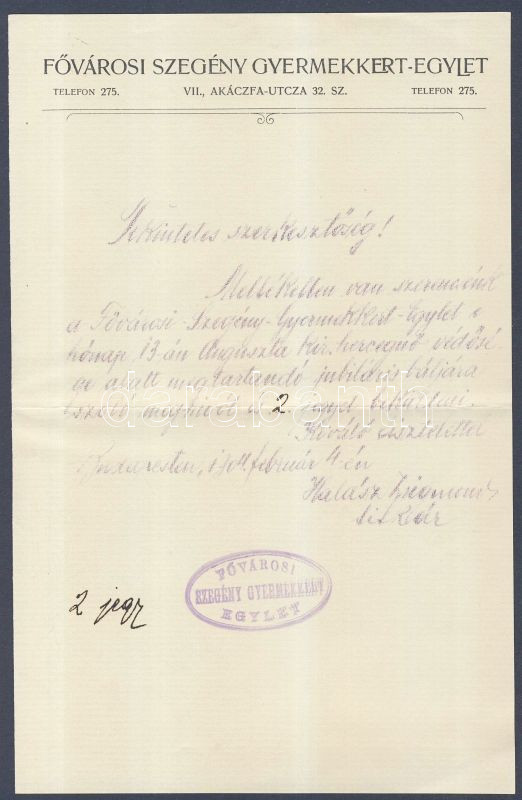 FŐVÁROSI SZEGÉNY GYERMEKKERT-EGYLET
TELEFON 275. VII., AKÁCZFA-UTCZA 32. SZ. TELEFON 275.
Tekintetes szerkesztőség!
Mellékelten van szerencsénk
a Fővárosi-Szegény-Gyermekkert-Egylet e
hónap 13-án Auguszta kir. herczegnő védősé-
ge alatt megtartandó jubiláris báljára
szóló meghivót és 2 jegyet beküldeni.
Kiváló tisztelettel
Budapesten, 1904. február 4-én
Halász Zsigmond
titkár
2 jegy
FŐVÁROSI
SZEGÉNY GYERMEKKERT
EGYLET
darabanth